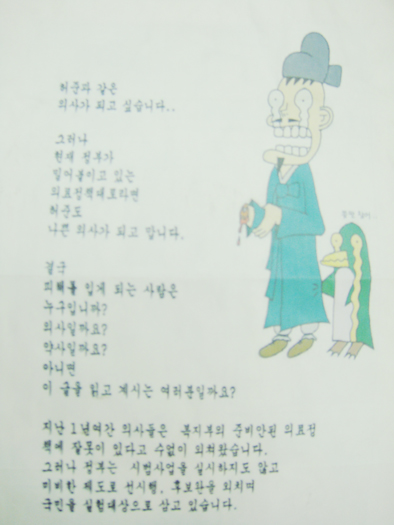 허준과 같은
의사가 되고 싶습니다..
그러나
현재 정부가
밀어붙이고 있는
의료정책대로라면
허준도
나쁜 의사가 되고 맙니다.
결국
피해를 입게 되는 사람은
누구입니까?
의사일까요?
약사일까요?
아니면
이 글을 읽고 계시는 여러분일까요?
지난 1년여간 의사들은 복지부의 준비안된 의료정
책에 잘못이 있다고 수없이 외쳐왔습니다.
그러나 정부는 시범사업을 실시하지도 않고
미비한 제도로 선시행, 후보완을 외치며
국민을 실험대상으로 삼고 있습니다.